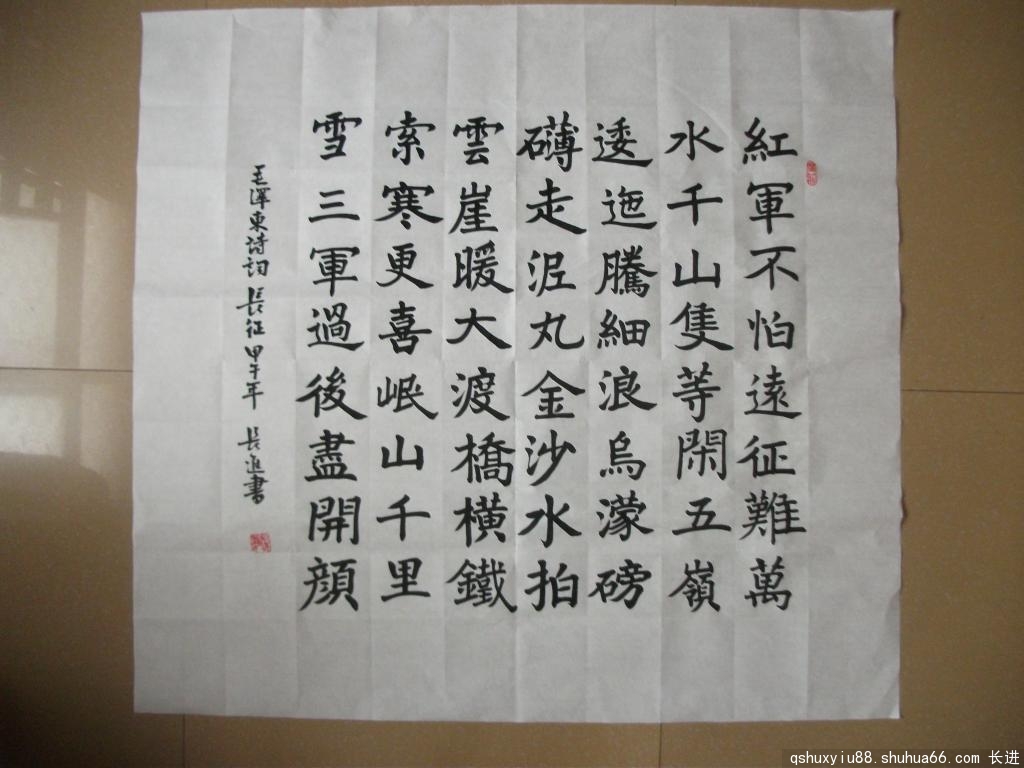 紅軍不怕遠征難萬
水千山隻等閑五嶺
逶迤騰細浪烏濛磅
礴走泥丸金沙水拍
雲崖暖大渡橋橫鐵
索寒更喜岷山千里
雪三軍過後盡開顔
毛澤東詩詞長征甲午年 長進書
qshuxyiu88.shuhua66.com 长进